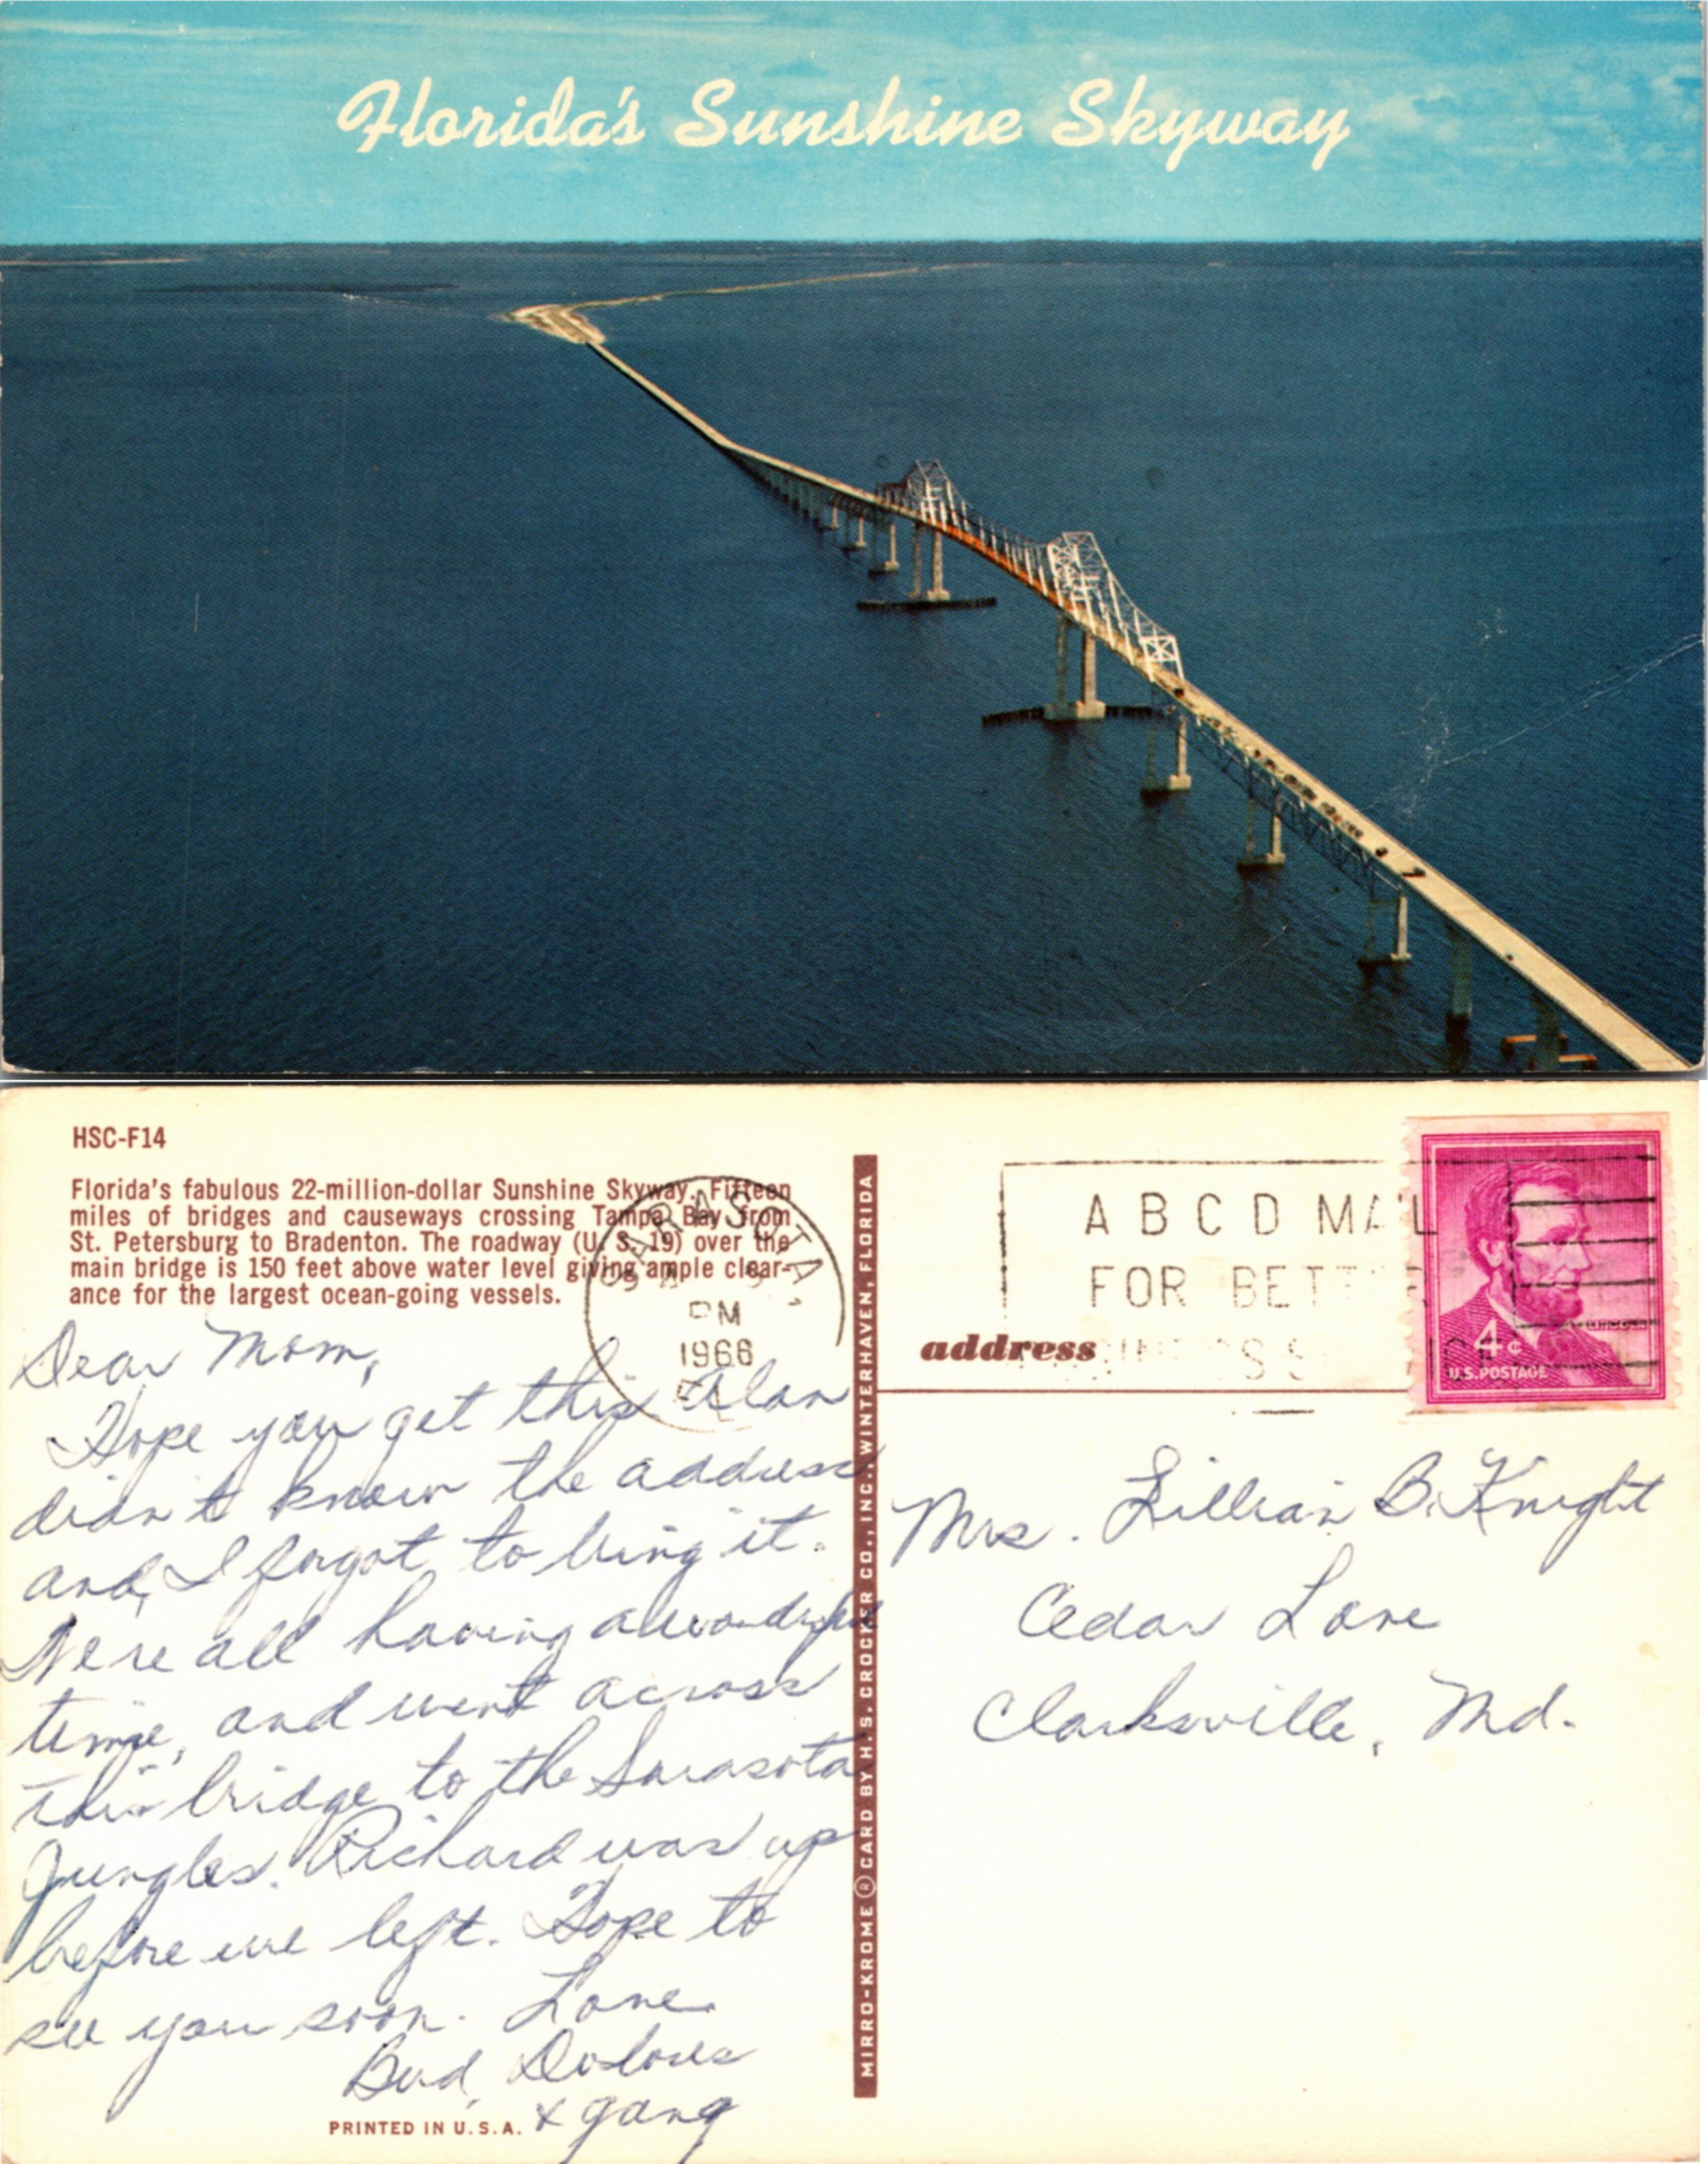 Florida's Sunshine Skyway
HSC-F14
Florida's fabulous 22-million-dollar Sunshine Skyway. Fifteen
miles of bridges and causeways crossing Tampa Bay from
St. Petersburg to Bradenton. The roadway (U. S. 19) over the
main bridge is 150 feet above water level giving ample clear-
ance for the largest ocean-going vessels.
SARASOTA,
PM
1966
Dear Mom,
Hope you get this Alan
didn't know the address
and, I forgot to bring it.
We're all having a wonderful
time, and went across
this bridge to the Sarasota
Jungles. Richard was up
before we left. Hope to
see you soon. Love
Bud, Dolores
& gang
PRINTED IN U.S.A.
MIRRO-KROME ® CARD BY H. S. CROCKER CO., INC., WINTERHAVEN, FLORIDA
A B C D MAIL
FOR BETTER
address
4¢
U.S. POSTAGE
LINCOLN
Mrs. Lillian B. Knight
Cedar Lane
Clarksville, Md.